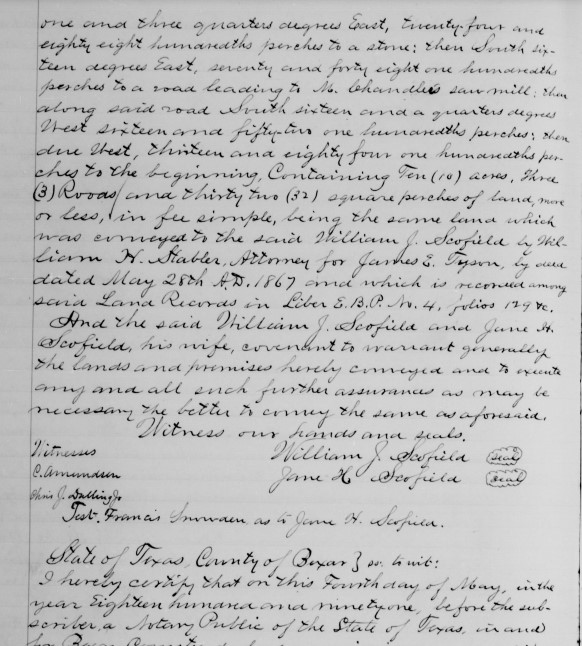 one and three quarters degrees East, twenty four and
eighty eight hundredths perches to a stone; then South six-
teen degrees East, seventy and forty eight one hundredths
perches to a road leading to M. Chandlee's saw mill; then
along said road South sixteen and a quarters degrees
West sixteen and fifty two one hundredths perches; then
due West, thirteen and eighty four one hundredths per-
ches to the beginning, Containing Ten (10) acres, Three
(3) Roods and thirty two (32) square perches of land, more
or less, in fee simple, being the same land which
was conveyed to the said William J. Scofield by Wil-
liam H. Stabler, Attorney for James E. Tyson, by deed
dated May 28th A.D. 1867 and which is recorded among
said Land Records in Liber E.B.P. No. 4, folios 129 &c.
And the said William J. Scofield and Jane H.
Scofield, his wife, covenant to warrant generally
the lands and premises hereby conveyed and to execute
any and all such further assurances as may be
necessary the better to convey the same as aforesaid.
Witness our hands and seals.
Witnesses William J. Scofield (seal)
C. Amundsen Jane H Scofield (seal)
Chris J. Jr
Test. Francis Snowden, as to Jane H. Scofield.
State of Texas, County of Bexar } ss. to wit:
I hereby certify that on this Fourth day of May, in the
year Eighteen hundred and ninety one, before the sub-
scriber, a Notary Public of the State of Texas, in and
for Bexar County